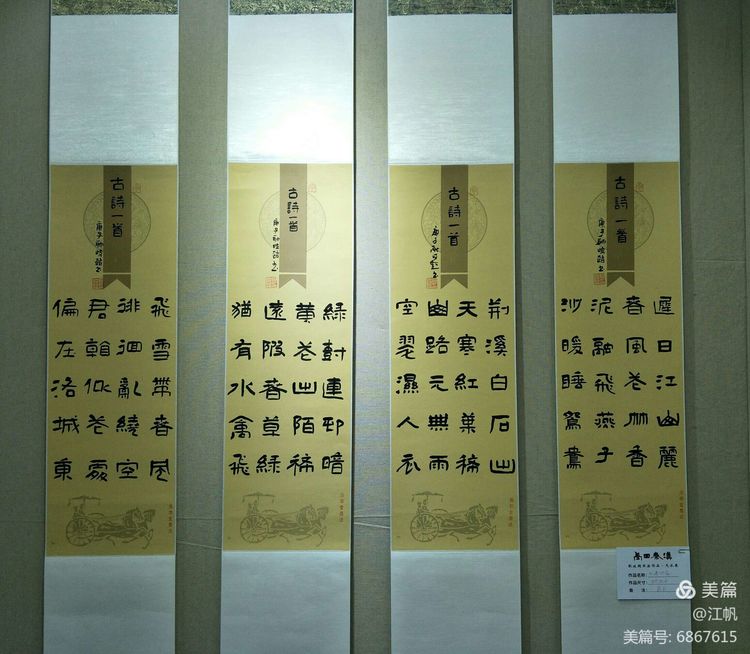 古詩一首
庚子
遲日江山麗
春風花艸香
泥融飛燕子
沙暖睡鴛鴦
古詩一首
庚子秋月
荆溪白石出
天寒紅葉稀
山路元無雨
空翠濕人衣
古詩一首
庚子
綠樹連邨暗
黄花出陌稀
遠陂春草綠
猶有水禽飛
古詩一首
庚子
飛雪帶春風
徘徊亂繞空
君看似花處
偏在洛城東
作品名称:
作品尺寸:
美篇
@江帆
美篇号: 6867615